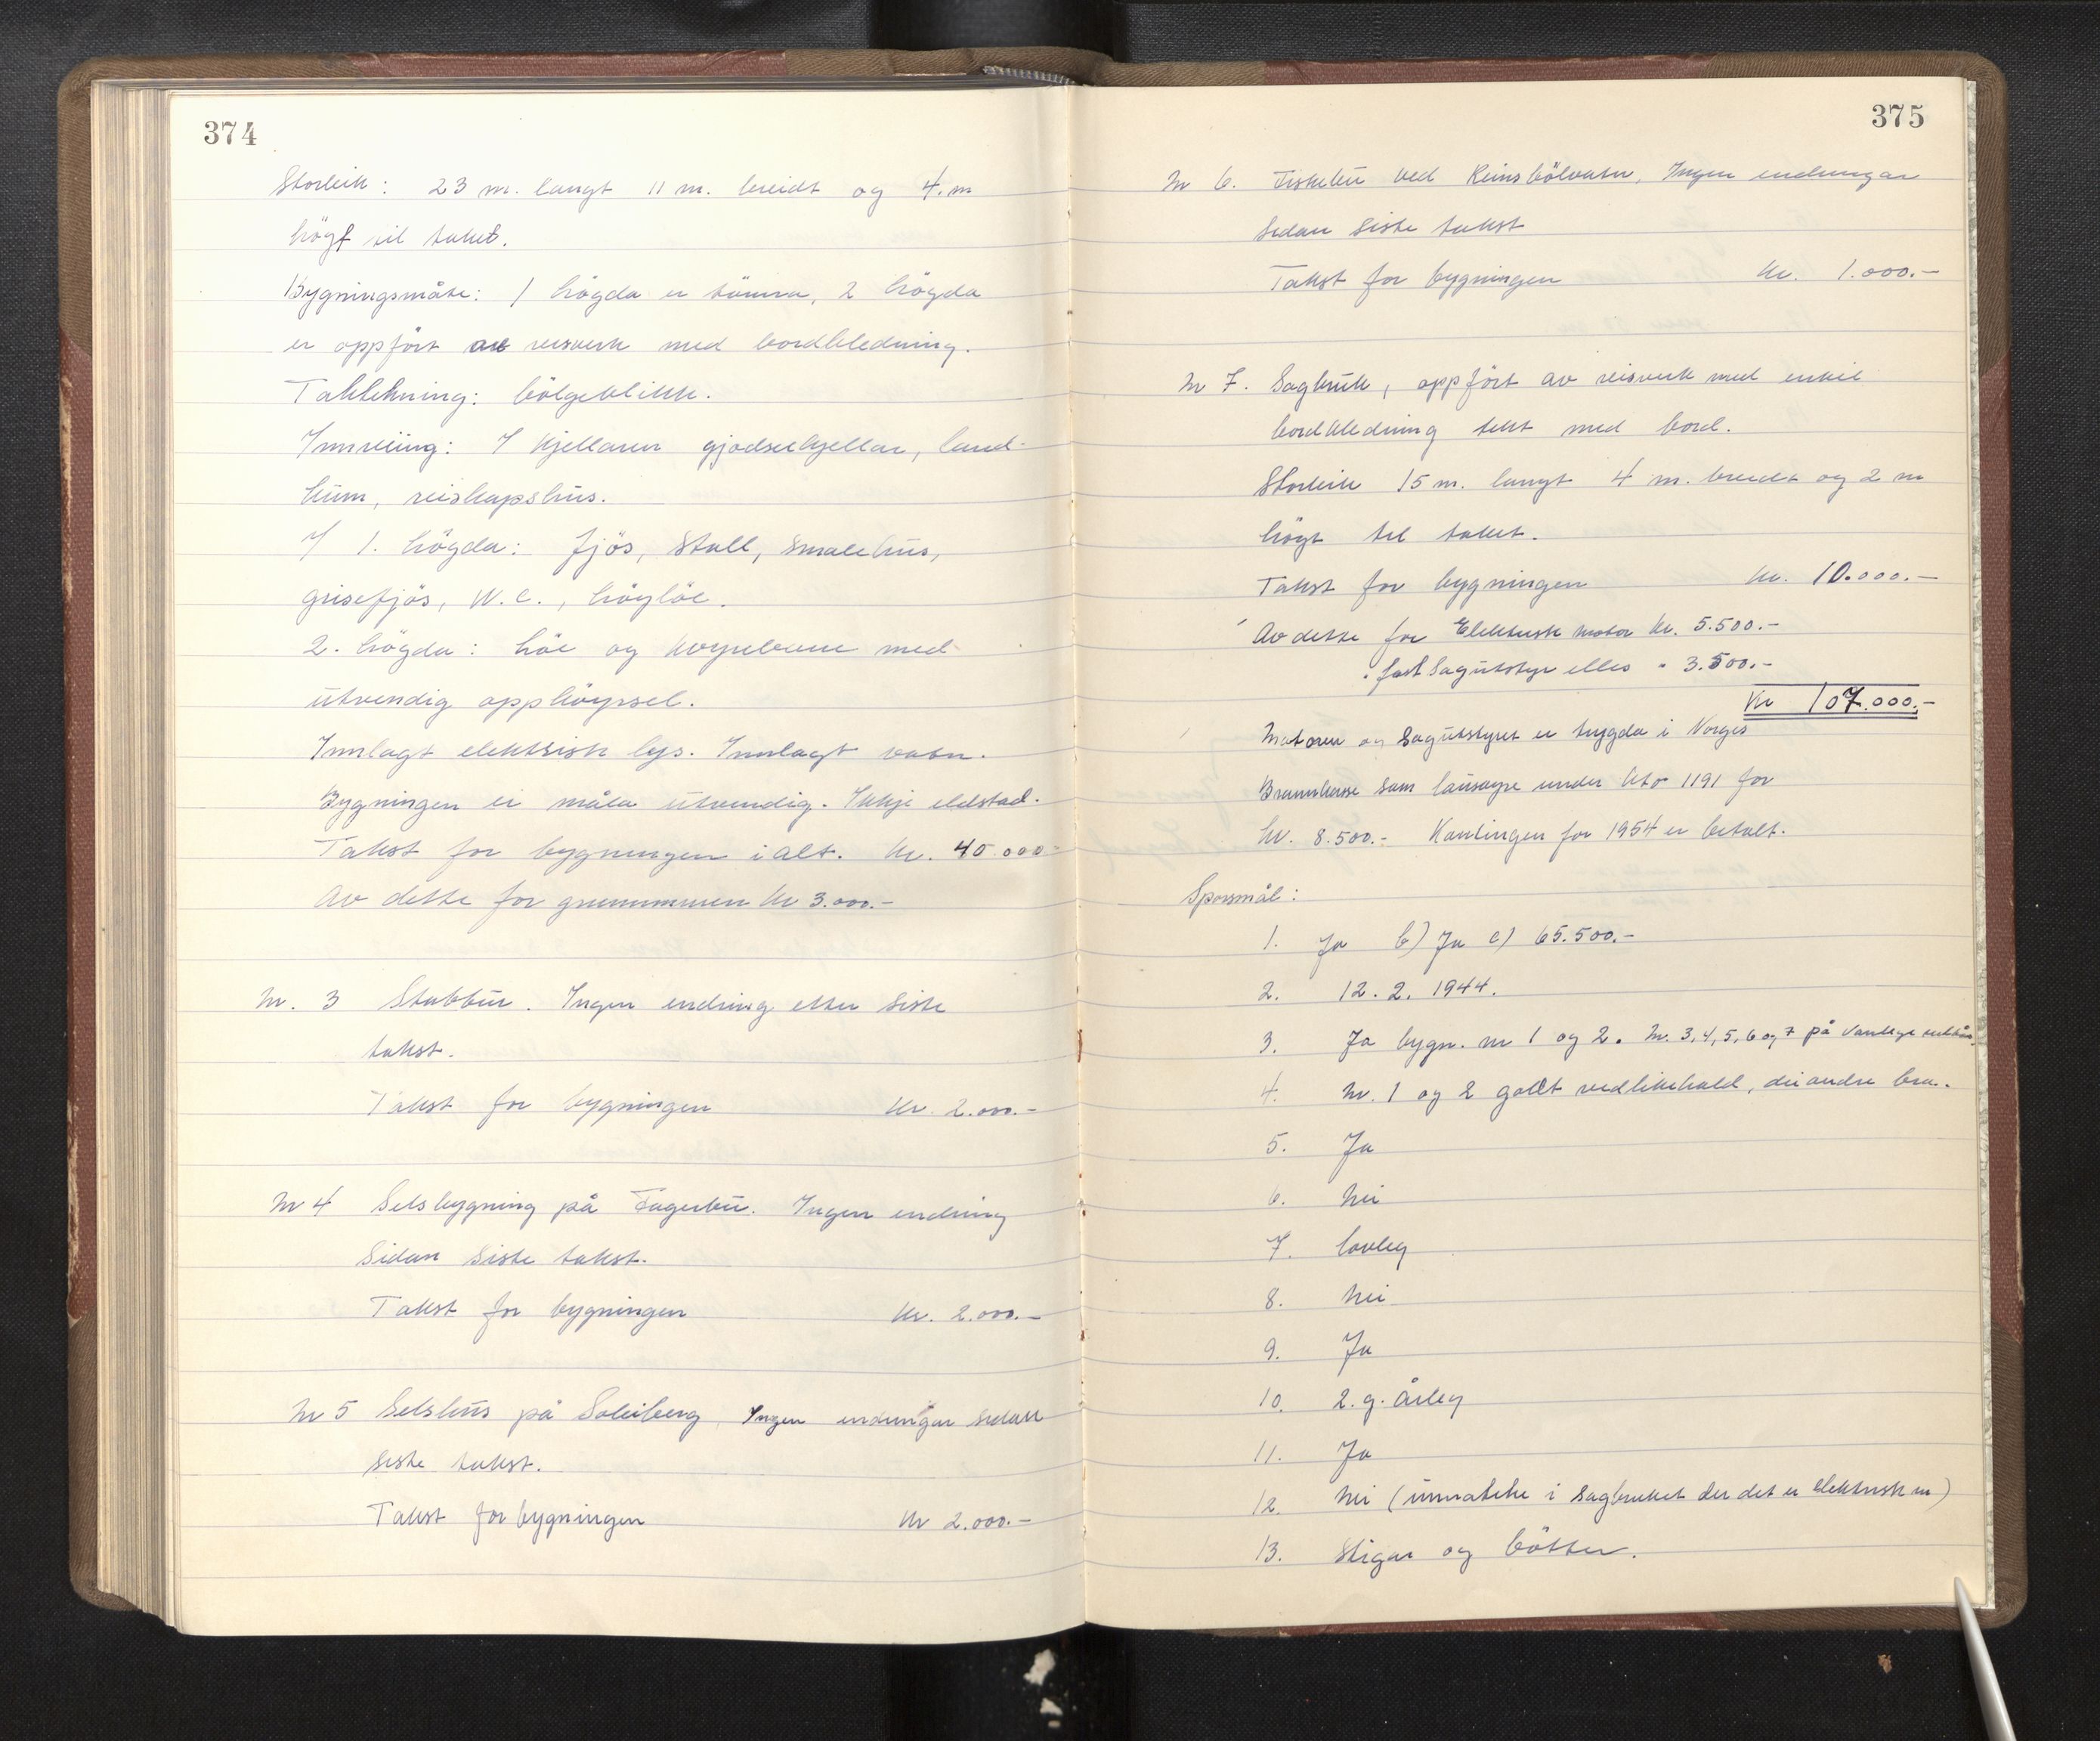 374
Storleik: 23 m. langt 11 m. breidt og 4. m
högt til taket.
Bygningsmåte: 1 högda er tömra, 2 högda
er oppfört av reisverk med bordkledning.
Taktekning: bölgeblikk.
Innreiing: I kjellaren gjödselkjellar, land-
kum, reiskapshus.
I 1. högda: fjös, stall, smalehus,
grisefjös, W.C., höyløe.
2. högda: höe og köyrebrue med
utvendig opphöyrsel.
Innlagt elektrisk lys. Innlagt vatn.
Bygningen er måla utvendig. Ikkje eldstad.
Takst for bygningen i alt. Kr. 40.000.-
Av dette for grunnmuren kr 3.000.-
Nr. 3 Stabbur. Ingen endring etter siste
takst.
Takst for bygningen Kr. 2.000.-
Nr 4 Selsbygning på Fagerbu. Ingen endring
sidan siste takst.
Takst for bygningen Kr. 2.000.-
Nr 5 Selshus på Soleiberg, Ingen endringar sidan
siste takst.
Takst for bygningen Kr 2.000.-
375
Nr 6. Fiskebu ved Reinsbölvatn, Ingen endringar
sidan siste takst
Takst for bygningen Kr. 1.000.-
Nr 7. Sagbruk, oppfört av reisverk med enkel
bordkledning tekt med bord.
Storleik 15 m. langt 4 m. breidt og 2 m
högt til taket.
Takst for bygningen kr. 10.000.-
Av dette for Elektrisk motor kr. 5.500.-
" fast Sagutstyr elles " 3.500.-
Kr 107.000.-
Motoren og Sagutstyret er trygda i Norges
Brannkasse som lausøyre under kto 1191 for
kr. 8.500.- Kontingen for 1954 er betalt.
Spörsmål:
1. Ja b) Ja c) 65.500.-
2. 12.2.1944.
3. Ja bygn. nr 1 og 2. Nr. 3,4,5,6 og 7 på vanlege
4. Nr. 1 og 2 godt vedlikehald, dei andre bra.
5. Ja
6. Nei
7. lovleg
8. Nei
9. Ja
10. 2. g. årleg
11. Ja
12. Nei (unnateke i Sagbruket der det er elektrisk m)
13. Stigar og bötter.